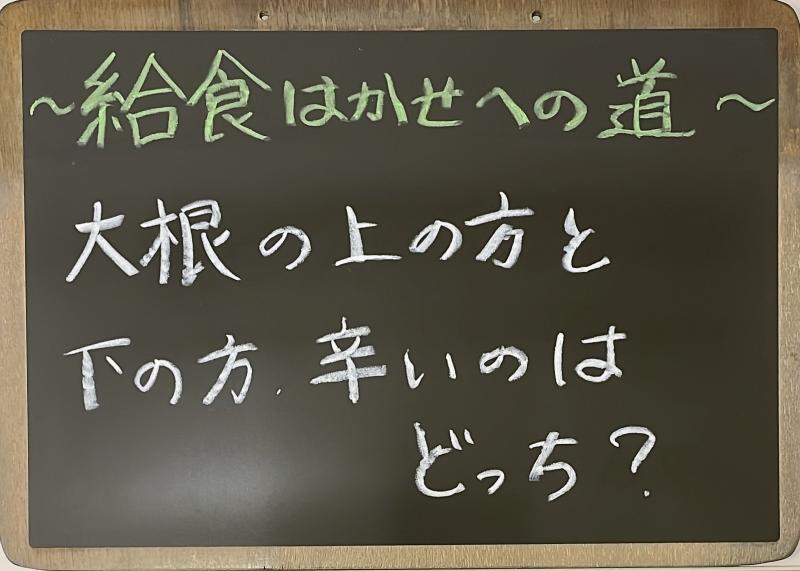 ～給食はかせへの道～
大根の上の方と
下の方、辛いのは
どっち？